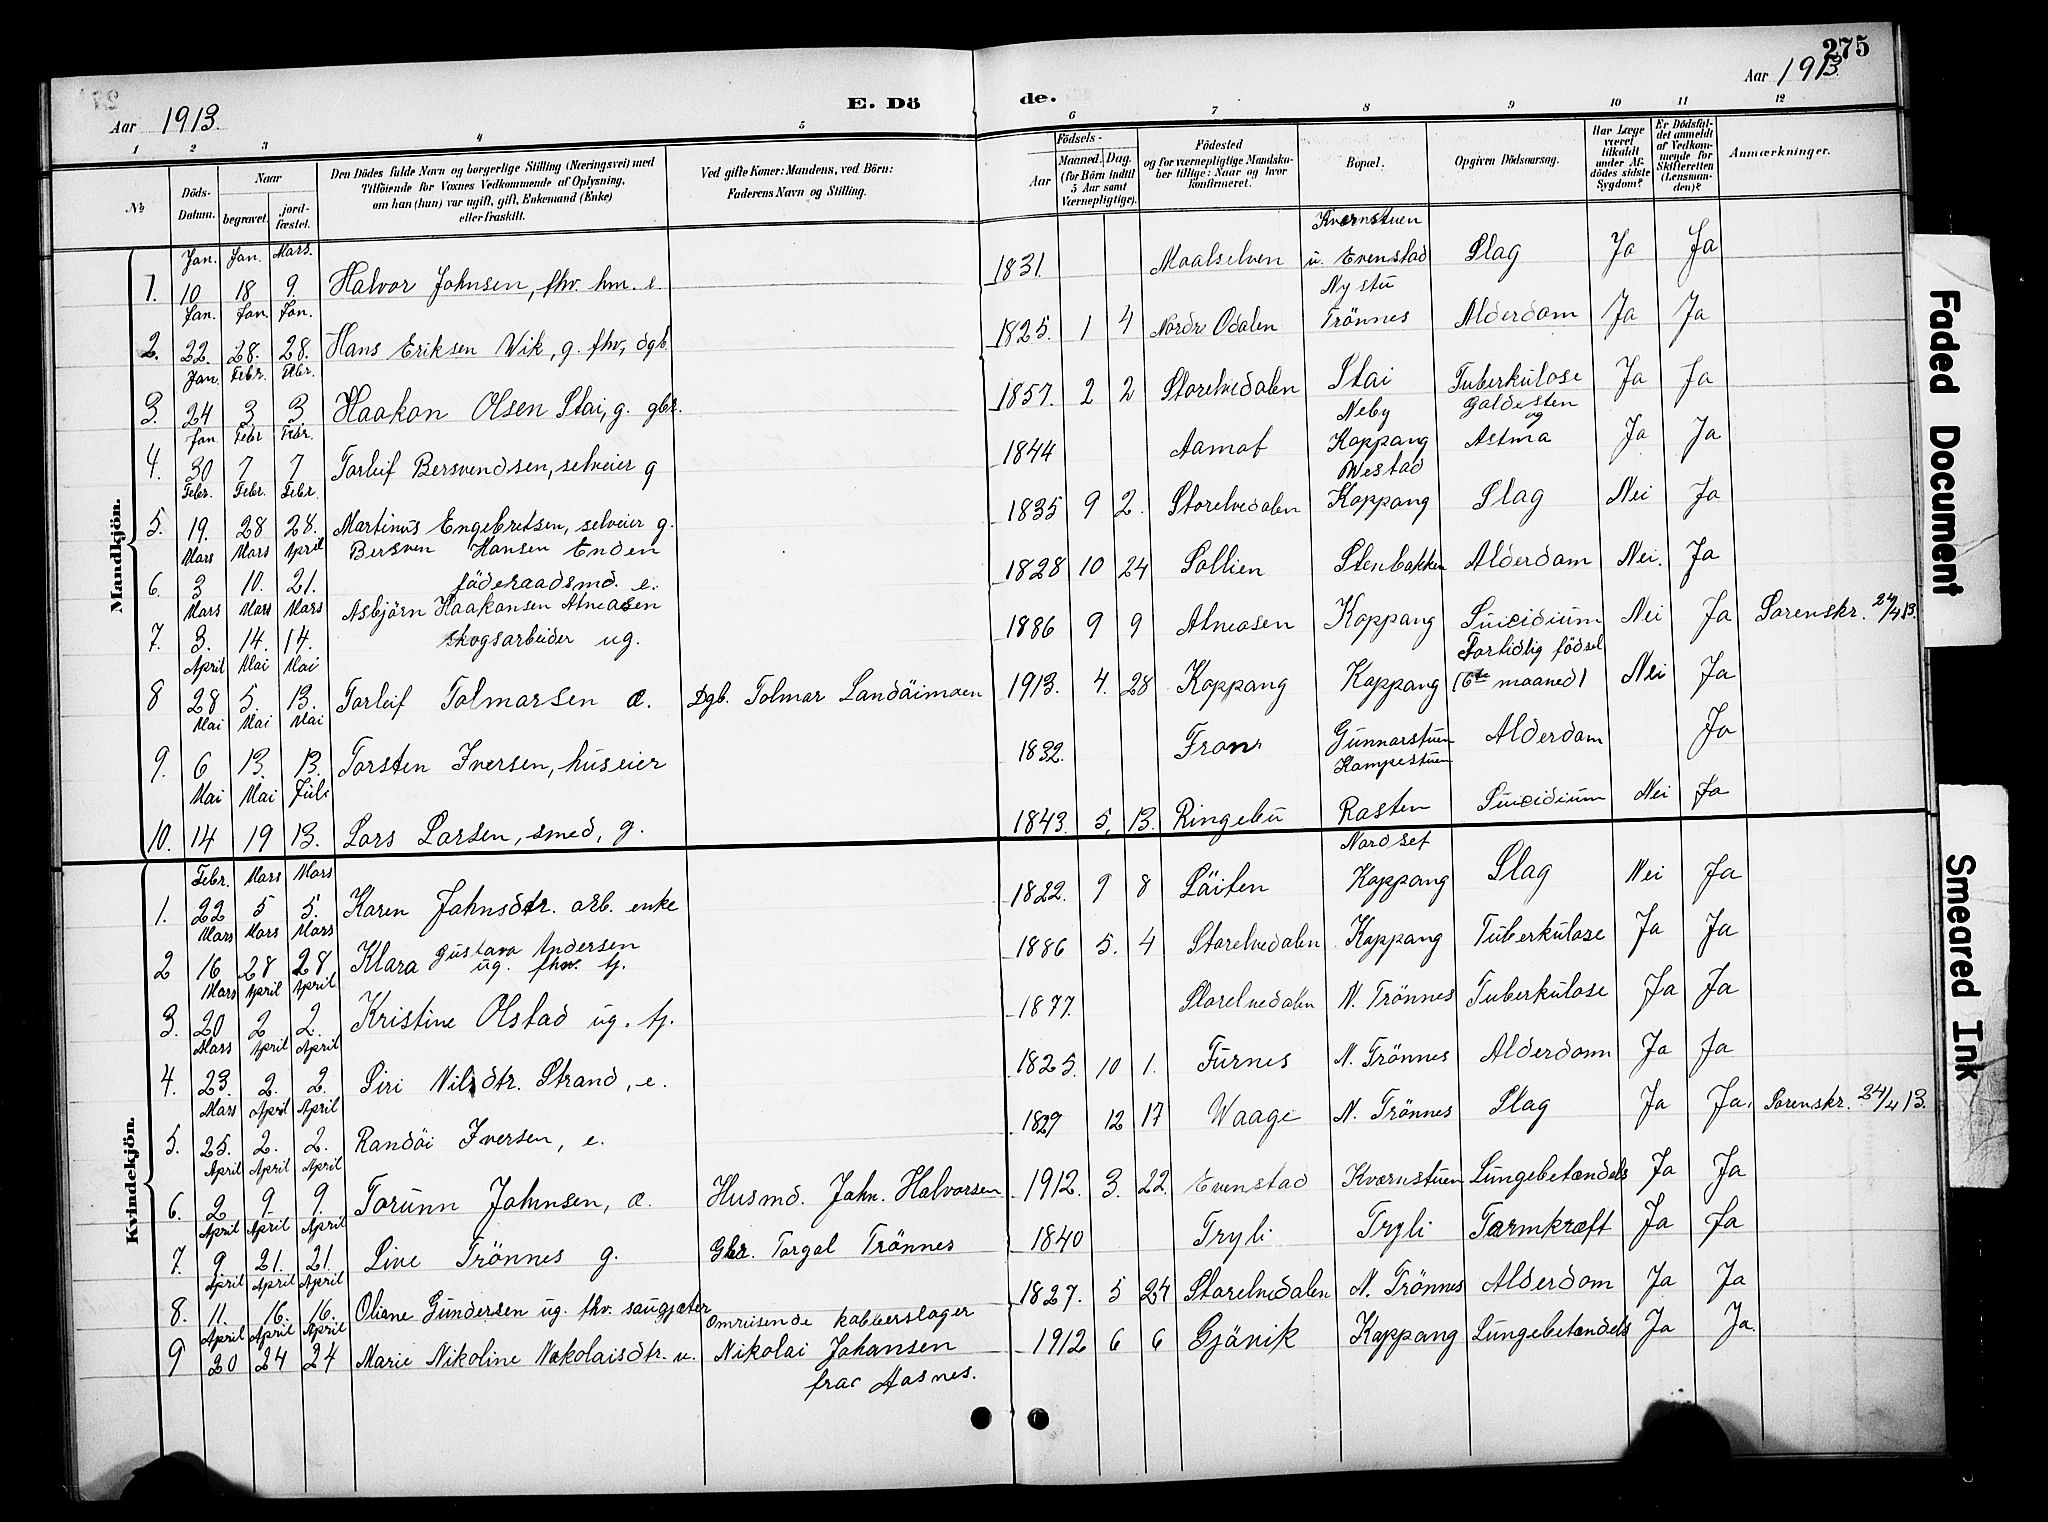 275
Aar 1913.
E. Dö
de.
Aar 1913
1 2 3 4 5 6 7 8 9 10 11 12
No
Döds-Datum.
Naar
begravet.
jordfæstet.
Den Dödes fulde Navn og borgerlige Stilling (Næringsvei) med
Tilföiende for Voxnes Vedkommende af Oplysning,
om han (hun) var ugift, gift, Enkemand (Enke)
eller fraskilt.
Ved gifte Koner: Mandens, ved Börn:
Faderens Navn og Stilling.
Födsels-
Aar
Maaned. Dag.
(for Börn indtil
5 Aar samt
Værnepligtige).
Födested
og for værnepligtige Mandska-
ber tillige: Naar og hvor
konfirmeret.
Bopæl.
Opgiven Dödsaarsag.
Har Læge
været
tilkaldt
under Af-
dödes sidste
Sygdom?
Er Dödsfal-
det anmeldt
af Vedkom-
mende for
Skifteretten
(Lensman-
den)?
Anmærkninger.
Mandkjön.
1. Jan. 10 Jan. 18 Mars. 9. Halvor Johnsen, fhv. hm. e. 1831. Maalselven Kvernstuen u. Evenstad Slag Ja Ja
2. Jan. 22. Jan 28. Jan. 28. Hans Eriksen Wik, g. fhv, dgb. 1825. 1 4 Nordre Odalen Nystu Trönnes Alderdom Ja Ja
3. Jan. 24 Febr. 3 Febr. 3 Haakon Olsen Stai, g. gbr. 1857. 2 2 Storelvedalen Stai Tuberkulose Ja Ja
4. Jan 30 Febr 7 Febr. 7 Torleif Bersvendsen, selveier g 1844 Aamot Neby Koppang Galdesten og Astma Ja Ja
5. Febr. 19. Febr. 28 Febr. 28. Martinus Engebretsen, selveier g. 1835 9 2. Storelvedalen Westad Koppang Slag Nei Ja
6. Mars 3 Mars 10. April 21. Bersven Hansen Enden
föderaadsmd. e. 1828 10 24 Sollien Stenbakken Alderdom Nei. Ja
7. Mars 3. Mars 14. Mars 14. Asbjörn Haakonsen Atneosen
skogsarbeider ug. 1886 9 9 Atneosen Koppang Suicidium Nei Ja Sorenskr. 24/4 13.
8 April 28 Mai 5. Mai 13. Torleif Tolmarsen æ. Dgb. Tolmar Landöimoen 1913. 4. 28 Koppang Koppang Fortidlig födsel (6te maaned) Nei Ja
9. Mai 6 Mai 13. Mai 13. Torsten Iversen, huseier 1832. Fron Gunnarstuen Alderdom Ja
10. Mai 14 Mai 19 Juli 13. Lars Larsen, smed, g. 1843. 5. 13. Ringebu Kampestuen Rasten Suicidium Nei Ja
Kvindekjön.
1. Febr. 22 Mars 5 Mars 5. Karen Johnsdtr. arb. enke 1822. 9 8 Löiten Nordset Koppang Slag Nei Ja
2 Mars 16 Mars 28 Mars 28 Klara Gustava Andersen
ug. fhv. tj. 1886 5. 4 Storelvedalen Koppang Tuberkulose Ja Ja
3. Mars 20 April 2 April 2. Kristine Olstad ug. tj. 1877. Storelvedalen N. Trönnes Tuberkulose Ja Ja
4. Mars 23. April 2. April 2. Siri Nilsdtr. Strand, e. 1825. 10 1. Furnes N. Trönnes Alderdom Ja Ja
5. Mars 25. April 2. April 2. Randöi Iversen, e. 1829 12 17 Waage N. Trönnes Slag Ja Ja. Sorenskr. 24/4 13.
6. April 2 April 9. April 9. Torunn Johnsen, æ. Husmd. John. Halvorsen 1912. 3. 22. Evenstad Kvernstuen Lungebetændels Ja Ja
7. April 9 April 21. April 21. Line Trönnes g. Gbr. Torgal Trönnes 1840 Tryli Tryli Tarmkræft Ja Ja
8. April 11. April 16. April 16. Oliane Gundersen ug. fhv. saugjæter 1827. 5 24 Storelvedalen N. Trönnes Alderdom Ja Ja
9 April 20 April 24 April 24 Marie Nikoline Nikolaisdtr. u. Omreisende kobberslager
Nikolai Johansen
fra Aasnes. 1912 6 6 Gjövik Koppang Lungebetændels Ja Ja.
Faded Document
Smeared Ink